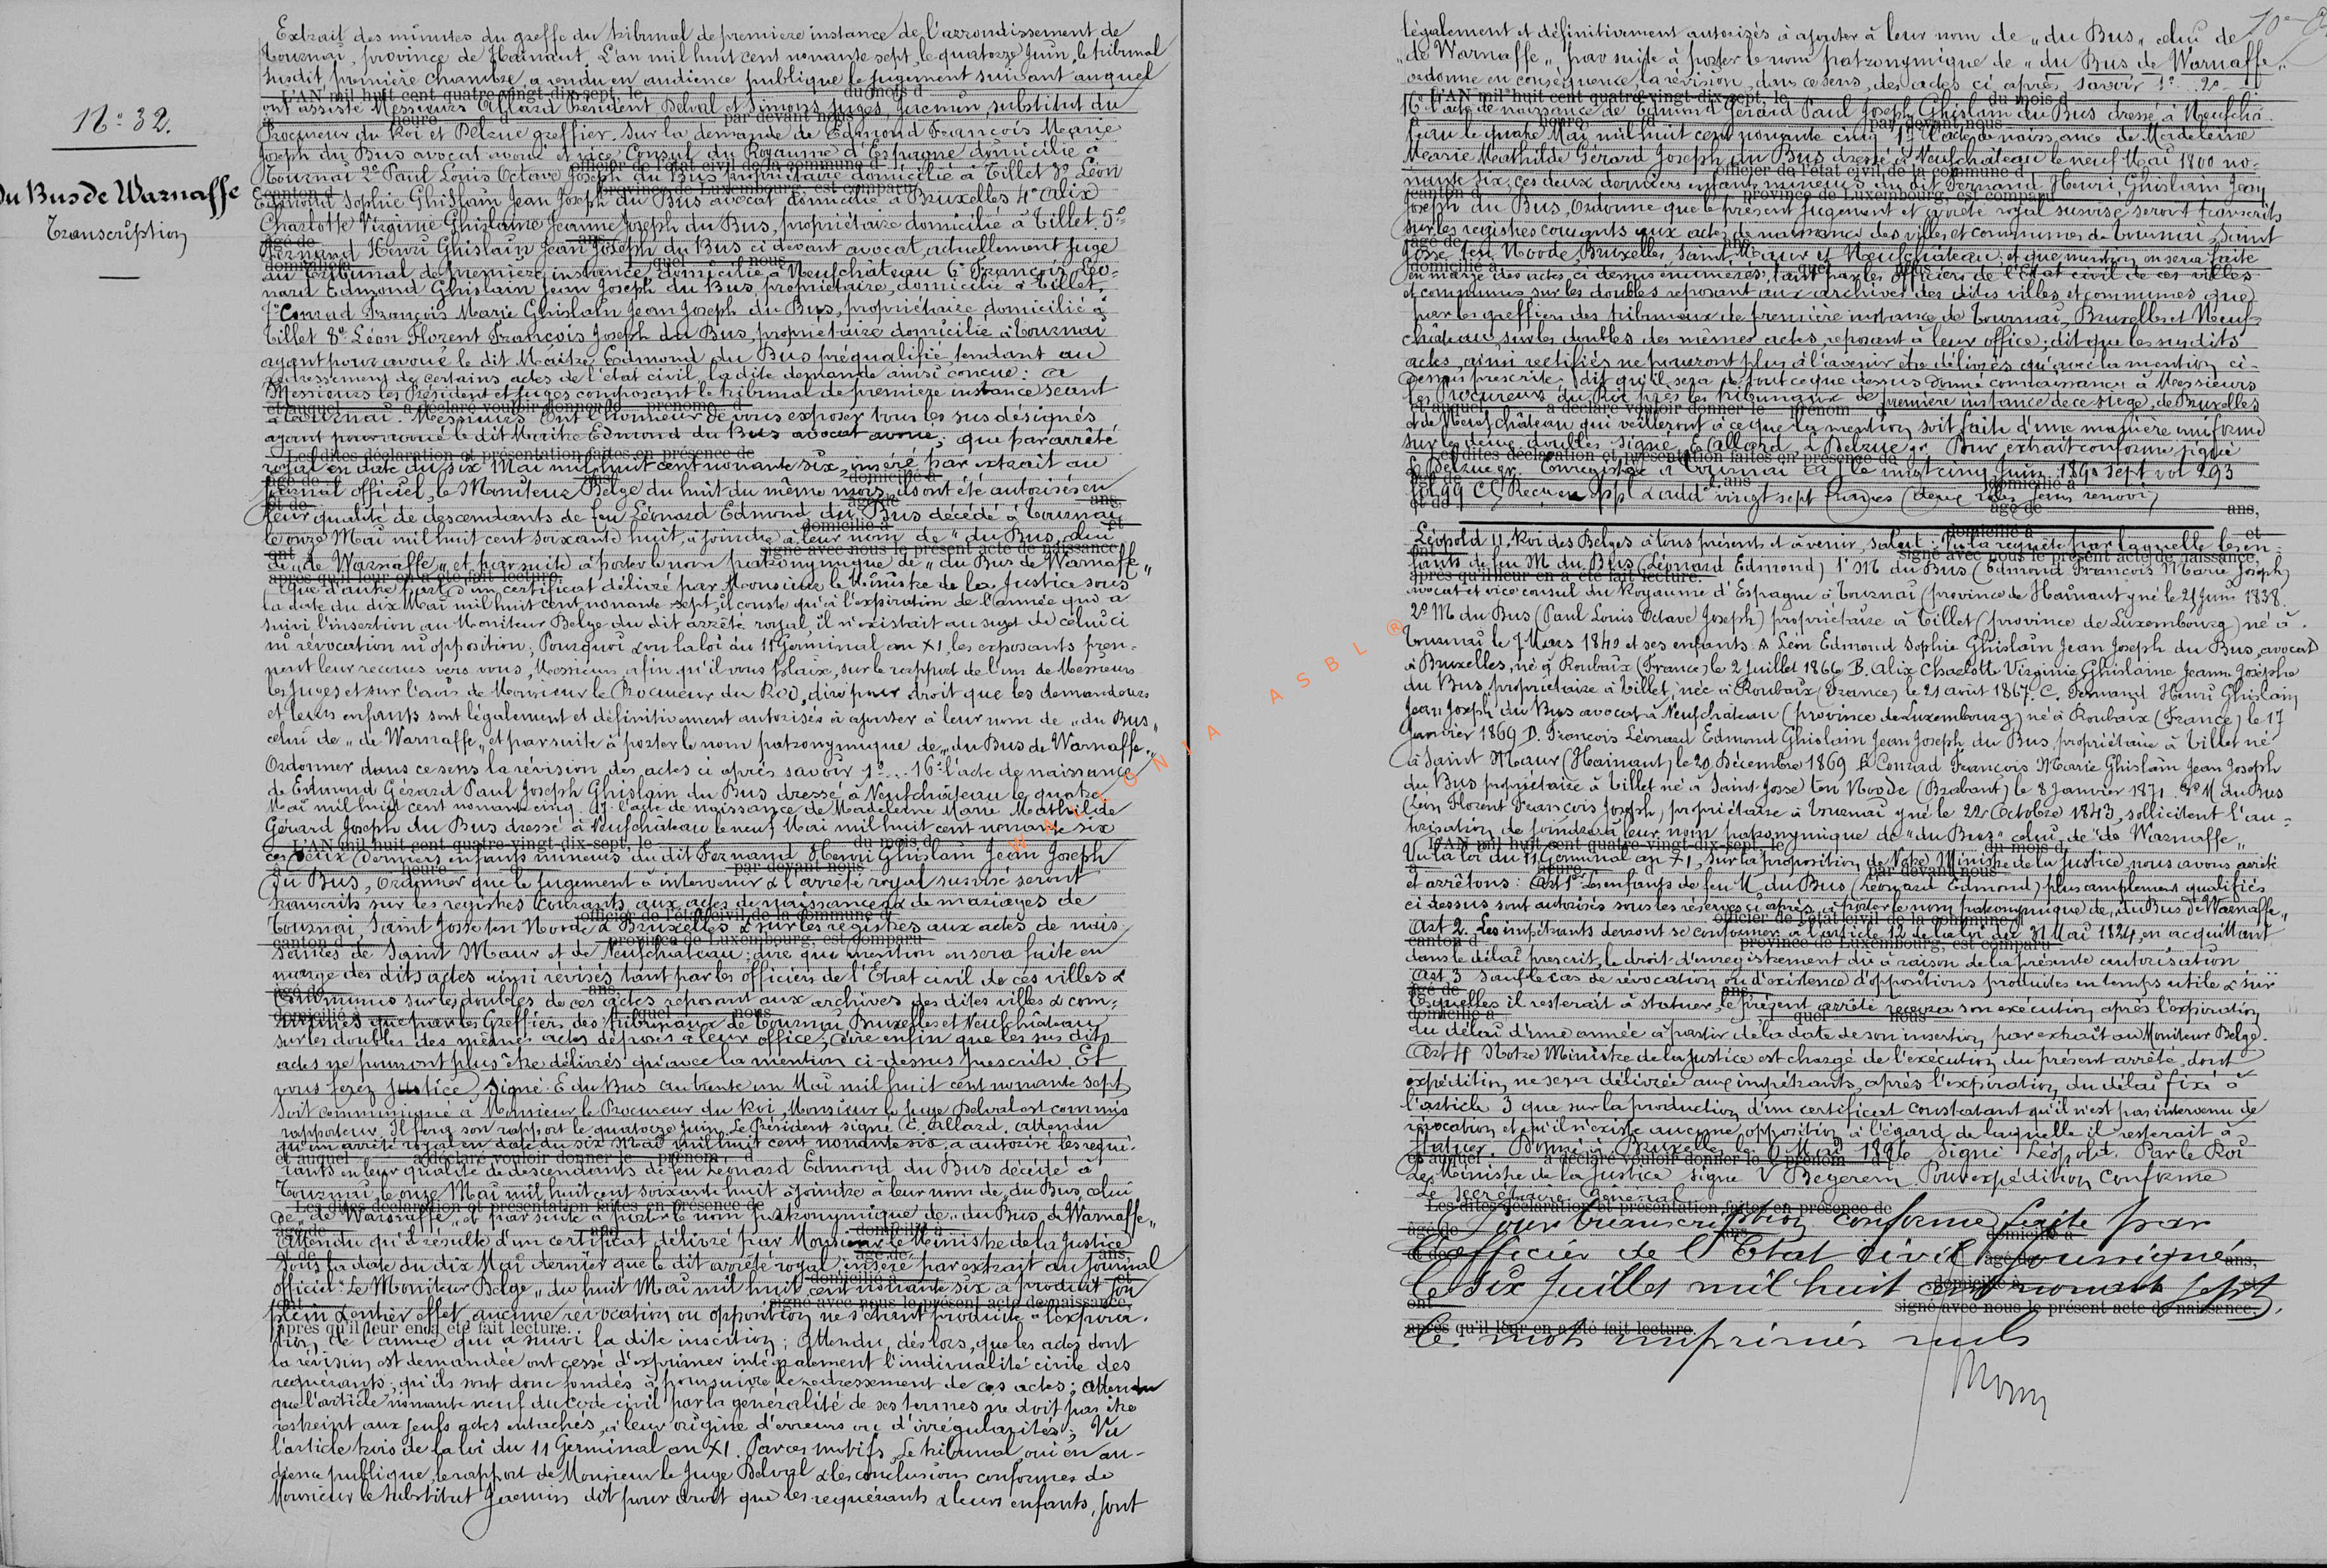 N° 32.
Du Bus de Warnaffe
Transcription
Extrait des minutes du greffe du tribunal de première instance de l'arrondissement de
Tournai, province de Hainaut, L'an mil huit cent nonante sept, le quatorze Juin, le tribunal
susdit, première chambre, a rendu en audience publique le jugement suivant auquel
ont assisté Messieurs Allard Président Delval et Simons juges, Jacmin, substitut du
Procureur du Roi et Belzue greffier. Sur la demande de Edmond François Marie
Joseph du Bus avocat avoué et vice Consul du Royaume d'Espagne domicilié à
Tournai 2° Paul Louis Octave Joseph du Bus propriétaire domicilié à Tillet 3° Léon
Edmond Sophie Ghislain Jean Joseph du Bus avocat domicilié à Bruxelles 4° Alix
Charlotte Virginie Ghislaine Jeanne Joseph du Bus, propriétaire domicilié à Tillet. 5°
Fernand Henri Ghislain Jean Joseph du Bus ci devant avocat, actuellement Juge
au Tribunal de première instance, domicilié à Neufchâteau 6° François Léo-
nard Edmond Ghislain Jean Joseph du Bus, propriétaire, domicilié à Tillet,
7° Conrad François Marie Ghislain Jean Joseph du Bus, propriétaire domicilié à
Tillet 8° Léon Florent François Joseph du Bus, propriétaire domicilié à Tournai
ayant pour avoué le dit Maître Edmond du Bus préqualifié, tendant au
redressement de certains actes de l'état civil, la dite demande ainsi conçue: a
Messieurs les Président et Juges composant le tribunal de première instance séant
à Tournai. Messieurs Ont l'honneur de vous exposer tous les sus désignés
ayant pour avoué le dit Maître Edmond du Bus avocat avoué; que par arrêté
royal en date du six Mai mil huit cent nonante six, inséré par extrait au
journal officiel, le Moniteur Belge du huit du même mois, ils ont été autorisés en
leur qualité de descendants de feu Léonard Edmond du Bus décédé à Tournai
le onze Mai mil huit cent soixante huit, à joindre à leur nom de "du Bus, celui
de "de Warnaffe" et par suite à porter le nom patronymique de "du Bus de Warnaffe"
Que d'autre part d'un certificat délivré par Monsieur le Ministre de la Justice sous
la date du dix Mai mil huit cent nonante sept, il conste qu'à l'expiration de l'année qui a
suivi l'insertion au Moniteur Belge du dit arrêté royal, il n'existait au sujet de celui ci
ni révocation ni opposition; Pourquoi vu la loi du 11 Germinal an XI, les exposants pren-
nent leur recours vers vous, Messieurs, afin qu'il vous plaise, sur le rapport de l'un de Messieurs
les Juges et sur l'avis de Monsieur le Procureur du Roi, dire pour droit que les demandeurs
et leurs enfants sont légalement et définitivement autorisés à ajouter à leur nom de "du Bus"
celui de "de Warnaffe" et par suite à porter le nom patronymique de "du Bus de Warnaffe"
Ordonner dans ce sens la révision des actes ci après savoir 1°... 16° l'acte de naissance
de Edmond Gérard Paul Joseph Ghislain du Bus dressé à Neufchâteau le quatre
Mai mil huit cent nonante cinq. 17° l'acte de naissance de Madeleine Marie Mathilde
Gérard Joseph du Bus dressé à Neufchâteau le neuf Mai mil huit cent nonante six
ces deux derniers enfants mineurs du dit Fernand Henri Ghislain Jean Joseph
du Bus, Ordonner que le jugement à intervenir & l'arrêté royal susvisé seront
transcrits sur les registres courants aux actes de naissance & de mariages de
Tournai, Saint Josse ten Noode & Bruxelles & sur les registres aux actes de nais-
sances de Saint Maur et de Neufchâteau; dire que mention en sera faite en
marge des dits actes ainsi révisés tant par les officiers de l'Etat civil de ces villes &
Communes sur les doubles de ces actes reposant aux archives des dites villes & com-
munes que par les Greffiers des tribunaux de Tournai Bruxelles et Neufchâteau
sur les doubles des mêmes actes déposés à leur office; dire enfin que les sus dits
actes ne pourront plus être délivrés qu'avec la mention ci-dessus prescrite. Et
vous ferez justice. Signé: E du Bus au trente un Mai mil huit cent nonante sept
Soit communiqué à Monsieur le Procureur du Roi, Monsieur le juge Delval est commis
rapporteur. Il fera son rapport le quatorze Juin. Le Président signé C. Allard. Attendu
qu'un arrêté royal en date du six Mai mil huit cent nonante six, a autorisé les requé-
rants en leur qualité de descendants de feu Léonard Edmond du Bus décédé à
Tournai, le onze Mai mil huit cent soixante huit à joindre à leur nom de du Bus, celui
de "de Warnaffe" et par suite à porter le nom patronymique de "du Bus de Warnaffe"
Attendu qu'il résulte d'un certificat délivré par Monsieur le Ministre de la Justice
sous la date du dix Mai dernier que le dit arrêté royal inséré par extrait au journal
officiel "Le Moniteur Belge" du huit Mai mil huit cent nonante six a produit son
plein & entier effet, aucune révocation ou opposition ne s'étant produite à l'expira-
tion de l'année qui a suivi la dite inscription; Attendu, dès lors, que les actes dont
la révision est demandée ont cessé d'exprimer intégralement l'individualité civile des
requérants; qu'ils sont donc fondés à poursuivre le redressement de ces actes; Attendu
que l'article nonante neuf du Code civil par la généralité de ses termes ne doit pas être
restreint aux seuls actes entachés, à leur origine d'erreurs ou d'irrégularités; Vu
l'article trois de la loi du 11 Germinal an XI. Par ces motifs, Le tribunal, oui en au-
dience publique, le rapport de Monsieur le Juge Delval & les conclusions conformes de
Monsieur le Substitut Jacmin dit pour droit que les requérants & leurs enfants, sont
légalement et définitivement autorisés à ajouter à leur nom de "du Bus" celui de
"de Warnaffe", par suite à porter le nom patronymique de "du Bus de Warnaffe"
ordonne en conséquence, la révision, dans ce sens, des actes ci après savoir 1°... 2°...
16° l'acte de naissance de Edmond Gérard Paul Joseph Ghislain du Bus dressé à Neufchâ-
teau le quatre Mai mil huit cent nonante cinq 17° l'acte de naissance de Madeleine
Marie Mathilde Gérard Joseph du Bus dressé à Neufchâteau le neuf Mai 1800 no-
nante six; ces deux derniers enfants mineurs du dit Fernand Henri Ghislain Jean
Joseph du Bus, Ordonne que le présent jugement et arrêté royal susvisé seront transcrits
sur les registres courants aux actes de naissance des villes et communes de Tournai, Saint
Josse ten Noode Bruxelles, Saint Maur et Neufchâteau, et que mention en sera faite
en marge des actes, ci dessus énumérés, tant par les officiers de l'Etat civil de ces villes
et communes sur les doubles reposant aux archives des dites villes et communes que
par les greffiers des tribunaux de première instance de Tournai, Bruxelles et Neuf-
château, sur les doubles des mêmes actes, reposant à leur office; dit que les susdits
actes, ainsi rectifiés ne pourront plus à l'avenir être délivrés qu'avec la mention ci-
dessus prescrite, dit qu'il sera de tout ce que dessus donné connaissance à Messieurs
les Procureurs du Roi près les tribunaux de première instance de ce siège, de Bruxelles
et de Neufchâteau qui veilleront à ce que la mention soit faite d'une manière uniforme
sur les deux doubles. Signé C. Allard & Belzue gr. Pour extrait conforme signé
Belzue gr. Enregistré à Tournai le vingt cinq Juin 1890 sept vol 293
fol 99 vingt sept francs (deux rôles sans renvoi)
Léopold II. Roi des Belges à tous présents et à venir, salut: Vu la requête par laquelle les en-
fants de feu M. du Bus (Léonard Edmond) 1° M du Bus (Edmond François Marie Joseph)
avocat et vice consul du Royaume d'Espagne à Tournai (province de Hainaut) y né le 21 Juin 1838.
2° M du Bus (Paul Louis Octave Joseph) propriétaire à Tillet (province de Luxembourg) né à
Tournai le 7 Mars 1840 et ses enfants: A Léon Edmond Sophie Ghislain Jean Joseph du Bus, avocat
à Bruxelles, né à Roubaix (France) le 2 juillet 1866 B. Alix Charlotte Virginie Ghislaine Jeanne Josèphe
du Bus, propriétaire à Tillet, née à Roubaix (France) le 21 août 1867. C. Fernand Henri Ghislain
Jean Joseph du Bus avocat à Neufchâteau (province de Luxembourg) né à Roubaix (France) le 17
Janvier 1869 D. François Léonard Edmond Ghislain Jean Joseph du Bus, propriétaire à Tillet né
à Saint Maur (Hainaut) le 20 Décembre 1869 E Conrad François Marie Ghislain Jean Joseph
du Bus propriétaire à Tillet né à Saint-Josse ten Noode (Brabant) le 8 Janvier 1871. 3° M du Bus
(Léon Florent François Joseph), propriétaire à Tournai y né le 22 Octobre 1843, sollicitent l'au-
torisation de joindre à leur nom patronymique de "du Bus" celui de "de Warnaffe"
Vu la loi du 11 Germinal an XI, sur la proposition de Notre Ministre de la Justice, nous avons arrêté
et arrêtons: Art 1er Les enfants de feu M. du Bus (Léonard Edmond) plus amplement qualifiés
ci dessus sont autorisés sous les réserves ci après, à porter le nom patronymique de "du Bus de Warnaffe"
Art 2. Les impétrants devront se conformer à l'article 12 de la loi du 31 Mai 1824, en acquittant
dans le délai prescrit, le droit d'enregistrement dû à raison de la présente autorisation
Art 3 Sauf le cas de révocation ou d'existence d'oppositions produites en temps utile & sur
lesquelles il resterait à statuer, le présent arrêté recevra son exécution après l'expiration
du délai d'une année à partir de la date de son insertion, par extrait au Moniteur Belge.
Art 4 Notre Ministre de la Justice est chargé de l'exécution du présent arrêté, dont
expédition ne sera délivrée aux impétrants, après l'expiration du délai fixé à
l'article 3 que sur la production d'un certificat constatant qu'il n'est pas intervenu de
révocation et qu'il n'existe aucune opposition à l'égard de laquelle il resterait à
statuer. Donné à Bruxelles, le 6 Mai 1896 Signé Léopold. Par le Roi
Le Ministre de la Justice signé V Begerem Pour expédition Conforme
Le Secrétaire Général
Pour transcription conforme faite par
l'officier de l'Etat civil soussigné
le six juillet mil huit cent nonante sept.
Ce mots imprimés nuls
WALLONIA ASBL ®